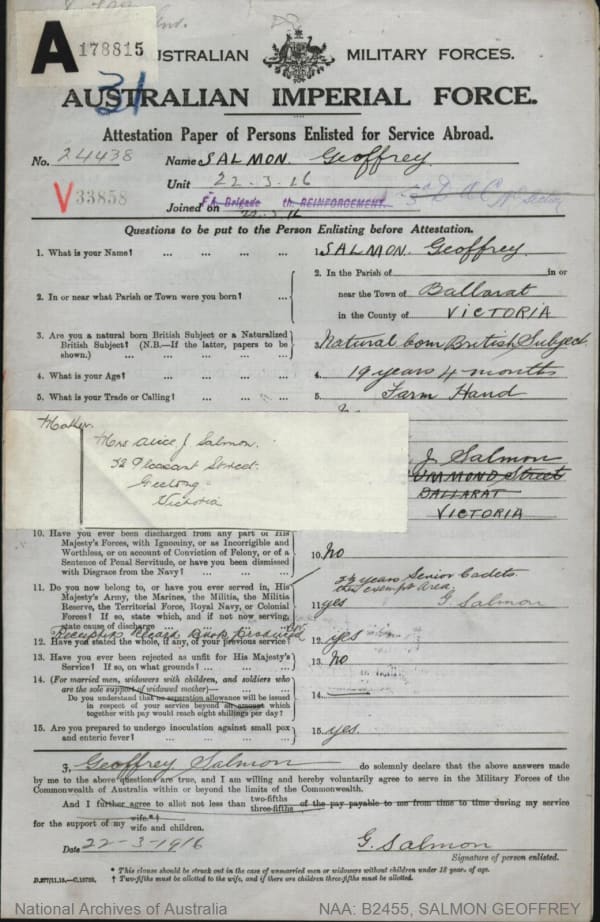 A 178815
AUSTRALIAN MILITARY FORCES.
31
AUSTRALIAN IMPERIAL FORCE.
Attestation Paper of Persons Enlisted for Service Abroad.
No. 24438 Name SALMON. Geoffrey.
V33858 Unit 22.3.16
Joined on F.A. Brigade th. REINFORCEMENT. D A C
Questions to be put to the Person Enlisting before Attestation.
1. What is your Name? ... ... ... 1. SALMON. Geoffrey.
2. In or near what Parish or Town were you born? ... 2. In the Parish of in or
near the Town of Ballarat
in the County of VICTORIA
3. Are you a natural born British Subject or a Naturalized British Subject? (N.B.—If the latter, papers to be shown.) ... ... ... ... 3. Natural born British Subject.
4. What is your Age? ... ... ... 4. 19 years 4 months
5. What is your Trade or Calling? ... ... ... 5. Farm Hand
Mother.
Mrs Alice J. Salmon.
32 Pleasant Street.
Geelong
Victoria
J Salmon
UMMOND Street
BALLARAT
VICTORIA
10. Have you ever been discharged from any part of His Majesty's Forces, with Ignominy, or as Incorrigible and Worthless, or on account of Conviction of Felony, or of a Sentence of Penal Servitude, or have you been dismissed with Disgrace from the Navy? ... ... ... 10. No
11. Do you now belong to, or have you ever served in, His Majesty's Army, the Marines, the Militia, the Militia Reserve, the Territorial Force, Royal Navy, or Colonial Forces? If so, state which, and if not now serving, state cause of discharge ... ... ... 11. yes
years Senior Cadets.
Exempt Area.
G. Salmon
Record Book Produced
12. Have you stated the whole, if any, of your previous service? 12. yes
13. Have you ever been rejected as unfit for His Majesty's Service? If so, on what grounds? ... ... ... 13. No
14. (For married men, widowers with children, and soldiers who are the sole support of widowed mother)—
Do you understand that no separation allowance will be issued in respect of your service beyond an amount which together with pay would reach eight shillings per day? 14.
15. Are you prepared to undergo inoculation against small pox and enteric fever? ... ... ... ... 15. yes.
I, Geoffrey Salmon do solemnly declare that the above answers made
by me to the above questions are true, and I am willing and hereby voluntarily agree to serve in the Military Forces of the
Commonwealth of Australia within or beyond the limits of the Commonwealth.
And I further agree to allot not less than two-fifths three-fifths of the pay payable to me from time to time during my service
for the support of my wife.*† wife and children.
Date 22-3-1916 G. Salmon
Signature of person enlisted.
* This clause should be struck out in the case of unmarried men or widowers without children under 18 year. of age.
† Two-fifths must be allotted to the wife, and if there are children three-fifths must be allotted.
National Archives of Australia NAA: B2455, SALMON GEOFFREY